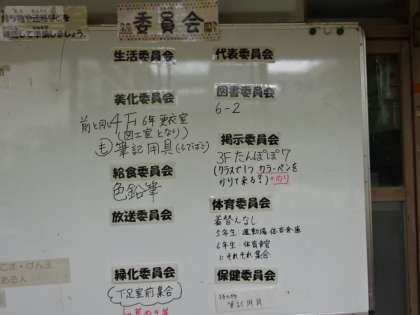 委員会
しましょう。
生活委員会
美化委員会
4F 6年更衣室
(図工室となり)
筆記用具(ふでばこ)
給食委員会
色鉛筆
放送委員会
緑化委員会
下足室前集合
代表委員会
図書委員会
6-2
掲示委員会
3Fたんぽぽ7
(クラスで1つ カラーペンを
かりて来る?)
体育委員会
着替えなし
5年生 運動場 体育倉庫
6年生 体育館
にそれぞれ集合
保健委員会
筆記用具